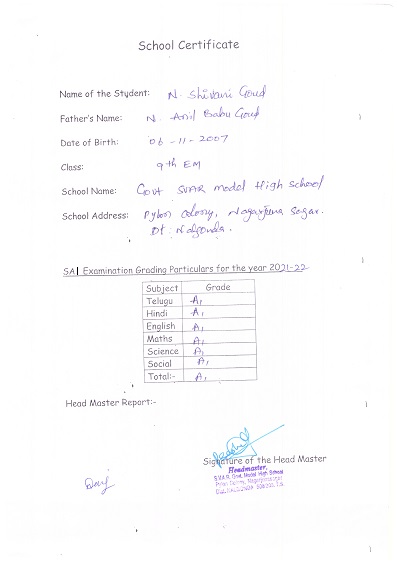 School Certificate
Name of the Student: N. Shivani Goud
Father's Name: N. Anil Babu Goud
Date of Birth: 06-11-2007
Class: 9th EM
School Name: Govt SVAR Model High School
School Address: Pylon Colony, Nagarjuna Sagar.
Dt: Nalgonda.
SA1 Examination Grading Particulars for the year 2021-22
Subject Grade
Telugu A1
Hindi A1
English A1
Maths A1
Science A1
Social A1
Total:- A1
Head Master Report:-
Signature of the Head Master
Headmaster,
S.V.A.R. Govt. Model High School
Pylon Colony, Nagarjunasagar